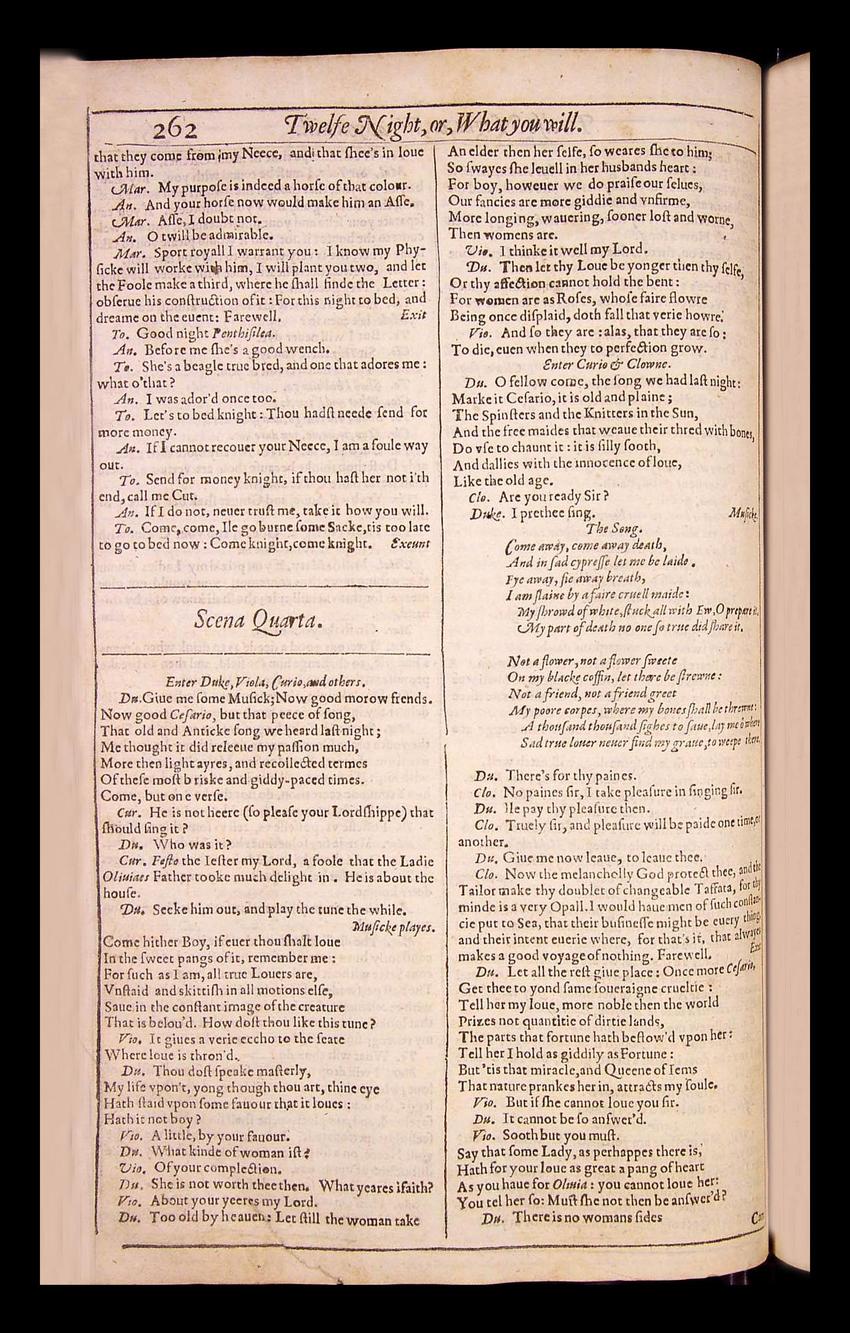 262
Twelfe Night, or, What you will.
that they come from my Neece, and that shee's in loue
with him.
Mar. My purpose is indeed a horse of that colour.
An. And your horse now would make him an Asse.
Mar. Asse, I doubt not.
An. O twill be admirable.
Mar. Sport royall I warrant you: I know my Phy-
sicke will worke with him, I will plant you two, and let
the Foole make a third, where he shall finde the Letter:
obserue his construction of it: For this night to bed, and
dreame on the euent: Farewell. Exit
To. Good night Penthisilea.
An. Before me she's a good wench.
To. She's a beagle true bred, and one that adores me:
what o'that?
An. I was ador'd once too.
To. Let's to bed knight: Thou hadst neede send for
more money.
An. If I cannot recouer your Neece, I am a foule way
out.
To. Send for money knight, if thou hast her not i'th
end, call me Cut.
An. If I do not, neuer trust me, take it how you will.
To. Come, come, Ile go burne some Sacke, tis too late
to go to bed now: Come knight, come knight. Exeunt
Scena Quarta.
Enter Duke, Viola, Curio, and others.
Du. Giue me some Musick; Now good morow friends.
Now good Cesario, but that peece of song,
That old and Anticke song we heard last night;
Me thought it did releeue my passion much,
More then light ayres, and recollected termes
Of these most briske and giddy-paced times.
Come, but one verse.
Cur. He is not heere (so please your Lordshippe) that
should sing it?
Du. Who was it?
Cur. Feste the Iester my Lord, a foole that the Ladie
Oliuiaes Father tooke much delight in. He is about the
house.
Du. Seeke him out, and play the tune the while.
Musicke playes.
Come hither Boy, if euer thou shalt loue
In the sweet pangs of it, remember me:
For such as I am, all true Louers are,
Vnstaid and skittish in all motions else,
Saue in the constant image of the creature
That is belou'd. How dost thou like this tune?
Vio. It giues a verie eccho to the seate
Where loue is thron'd.
Du. Thou dost speake masterly,
My life vpon't, yong though thou art, thine eye
Hath staid vpon some fauour that it loues:
Hath it not boy?
Vio. A little, by your fauour.
Du. What kinde of woman ist?
Vio. Of your complection.
Du. She is not worth thee then. What yeares ifaith?
Vio. About your yeeres my Lord.
Du. Too old by heauen: Let still the woman take
An elder then her selfe, so weares she to him;
So swayes she leuell in her husbands heart:
For boy, howeuer we do praise our selues,
Our fancies are more giddie and vnfirme,
More longing, wauering, sooner lost and worne,
Then womens are.
Vio. I thinke it well my Lord.
Du. Then let thy Loue be yonger then thy selfe,
Or thy affection cannot hold the bent:
For women are as Roses, whose faire flowre
Being once displaid, doth fall that verie howre.
Vio. And so they are: alas, that they are so:
To die, euen when they to perfection grow.
Enter Curio & Clowne.
Du. O fellow come, the song we had last night:
Marke it Cesario, it is old and plaine;
The Spinsters and the Knitters in the Sun,
And the free maides that weaue their thred with bones,
Do vse to chaunt it: it is silly sooth,
And dallies with the innocence of loue,
Like the old age.
Clo. Are you ready Sir?
Duke. I prethee sing. Musicke
The Song.
Come away, come away death,
And in sad cypresse let me be laide.
Fye away, fie away breath,
I am slaine by a faire cruell maide:
My shrowd of white, stuck all with Ew, O prepare it.
My part of death no one so true did share it.
Not a flower, not a flower sweete
On my blacke coffin, let there be strewne:
Not a friend, not a friend greet
My poore corpes, where my bones shall be throwne:
A thousand thousand sighes to saue, lay me ô where
Sad true louer neuer find my graue, to weepe there.
Du. There's for thy paines.
Clo. No paines sir, I take pleasure in singing sir.
Du. Ile pay thy pleasure then.
Clo. Truely sir, and pleasure will be paide one time, or
another.
Du. Giue me now leaue, to leaue thee.
Clo. Now the melancholly God protect thee, and the
Tailor make thy doublet of changeable Taffata, for thy
minde is a very Opall. I would haue men of such constan-
cie put to Sea, that their businesse might be euery thing,
and their intent euerie where, for that's it, that alwayes
makes a good voyage of nothing. Farewell. Exit
Du. Let all the rest giue place: Once more Cesario,
Get thee to yond same soueraigne crueltie:
Tell her my loue, more noble then the world
Prizes not quantitie of dirtie lands,
The parts that fortune hath bestow'd vpon her:
Tell her I hold as giddily as Fortune:
But 'tis that miracle, and Queene of Iems
That nature prankes her in, attracts my soule.
Vio. But if she cannot loue you sir.
Du. It cannot be so answer'd.
Vio. Sooth but you must.
Say that some Lady, as perhappes there is,
Hath for your loue as great a pang of heart
As you haue for Oliuia: you cannot loue her:
You tel her so: Must she not then be answer'd?
Du. There is no womans sides